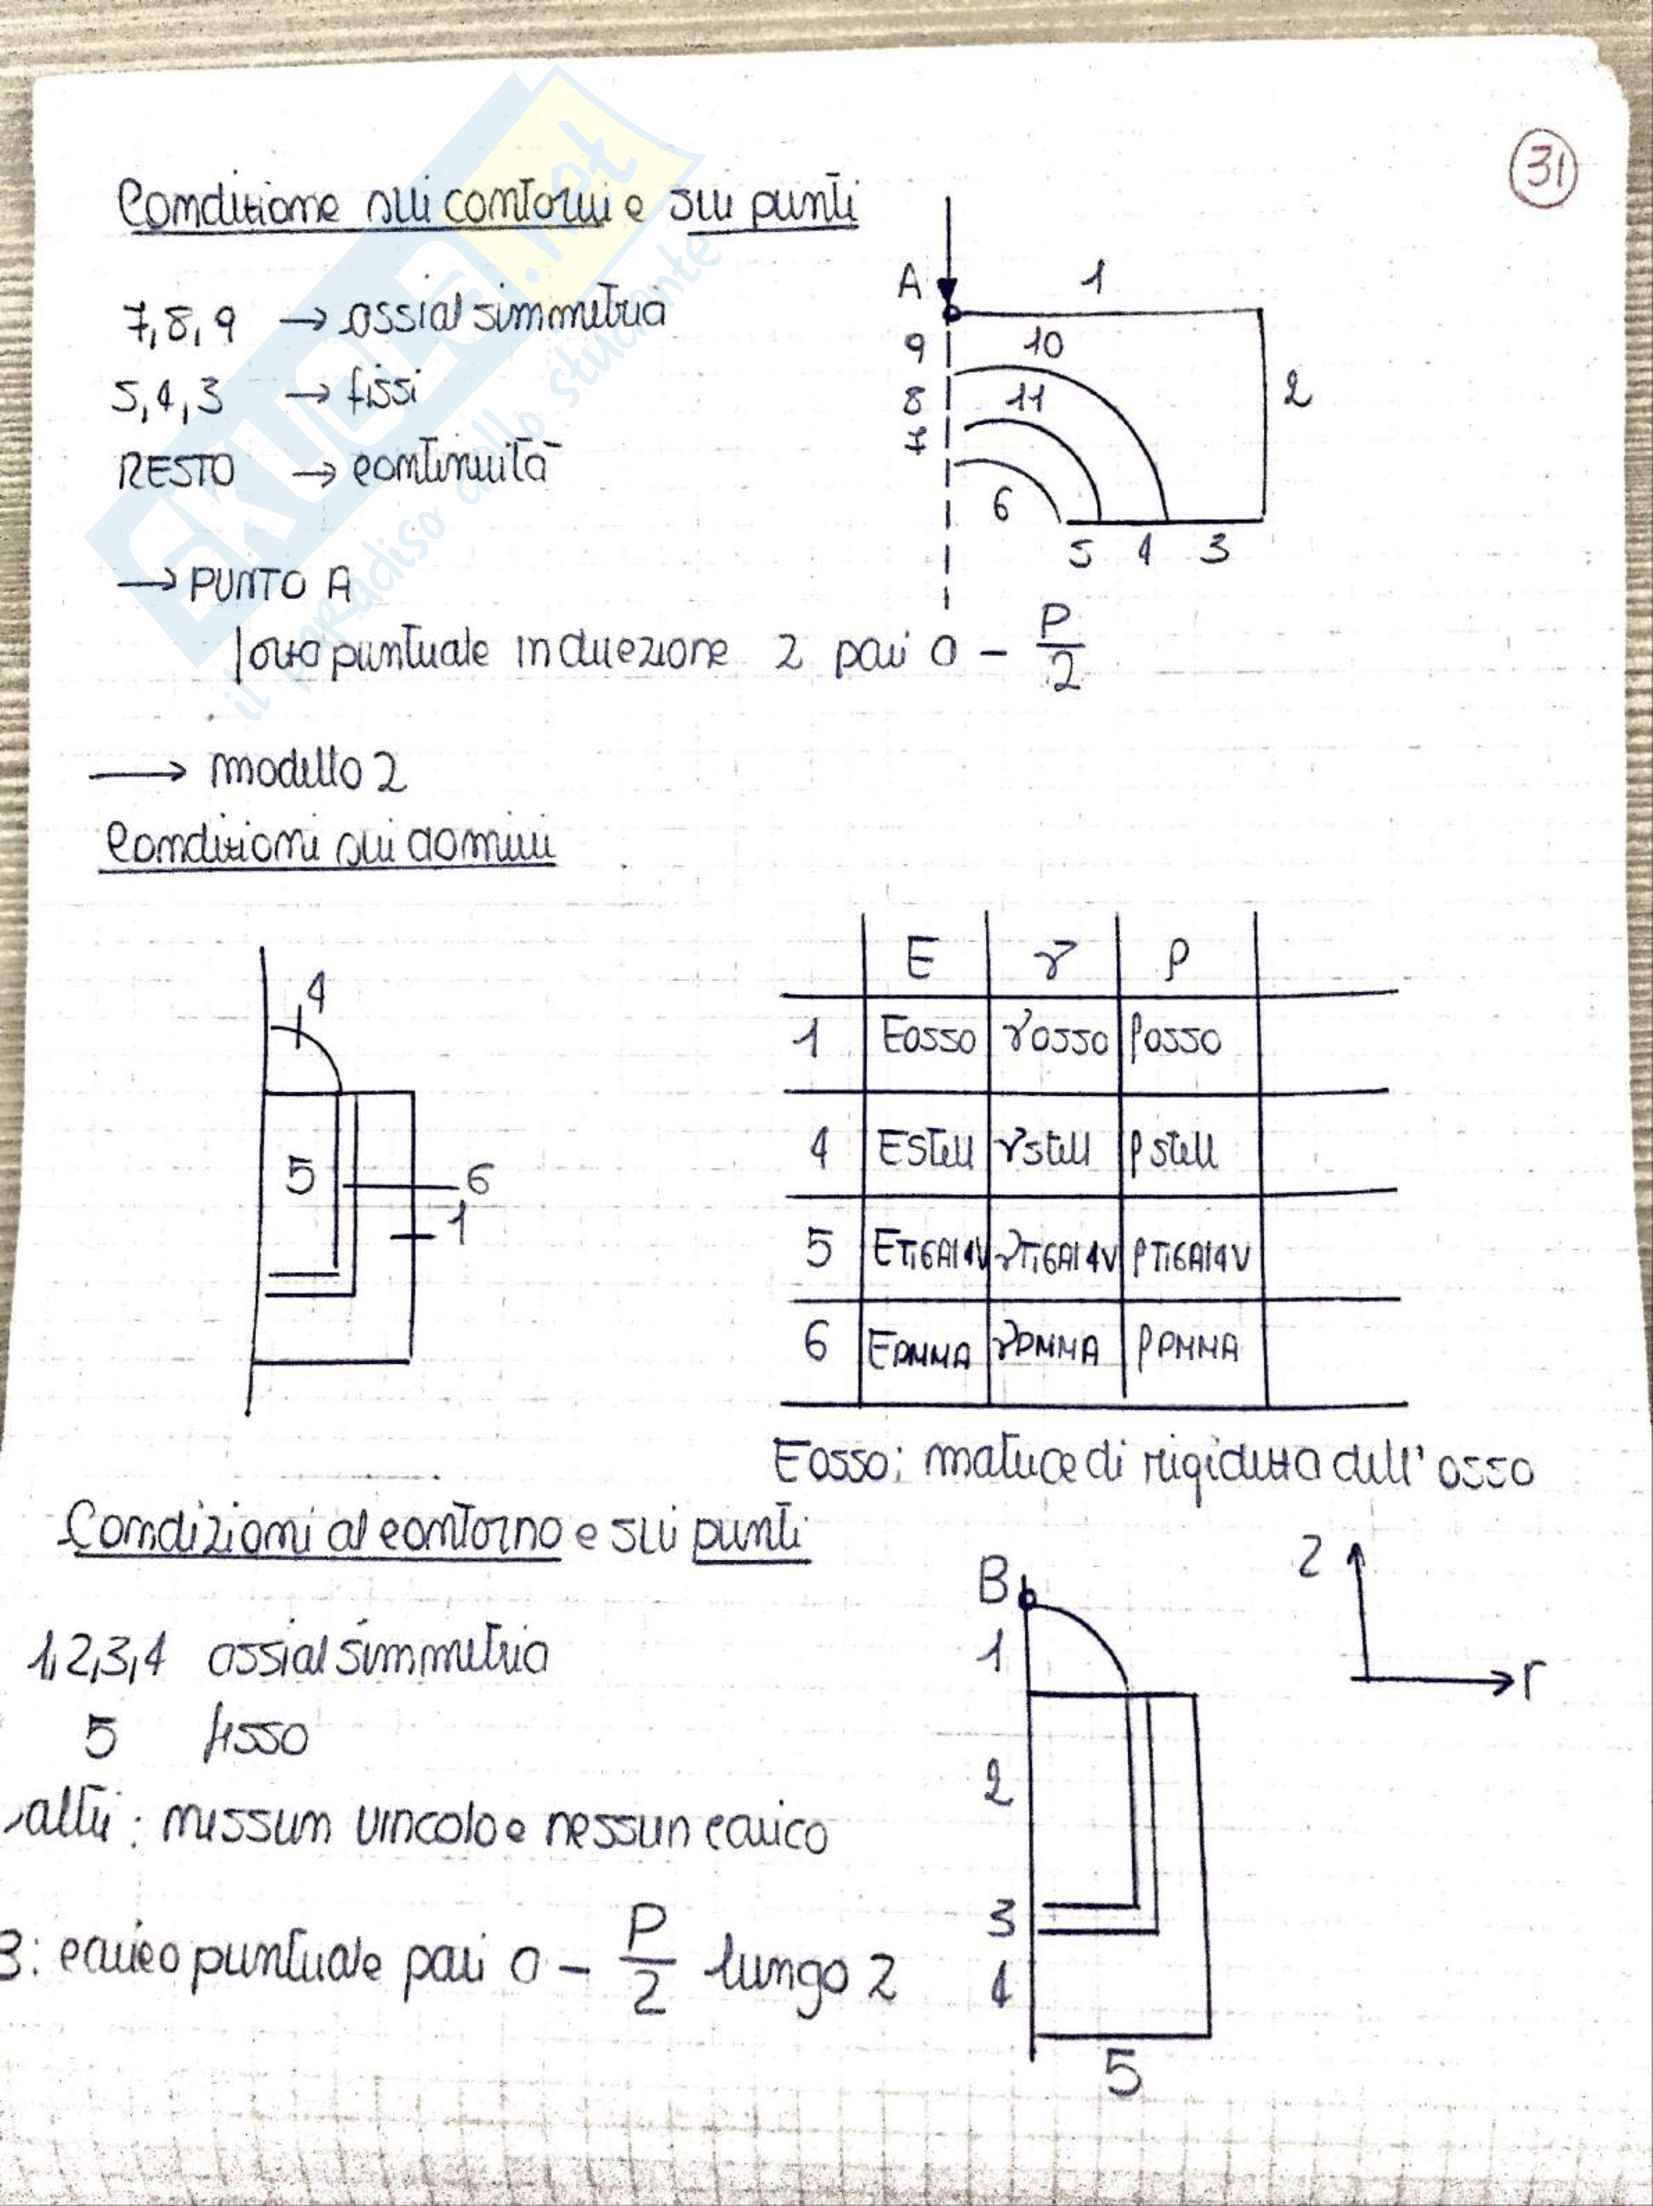 31
Condizione sui contorni e sui punti
7, 8, 9 → assialsimmetria
5, 4, 3 → fissi
RESTO → continuità
A
1
9
10
2
8
11
7
6
5 4 3
→ PUNTO A
forza puntuale in direzione z pari a - P/2
→ modello 2
Condizioni sui domini
4
5
6
1
E γ ρ
1 Eosso γosso ρosso
4 Estell γstell ρstell
5 ETi6Al4V γTi6Al4V ρTi6Al4V
6 EPMMA γPMMA ρPMMA
Eosso: matrice di rigidezza dell'osso
Condizioni al contorno e sui punti
1,2,3,4 assialsimmetria
5 fisso
altri: nessun vincolo e nessun carico
B: carico puntuale pari a - P/2 lungo z
B
1
2
3
4
5
z
r
SKUOLA.net
il paradiso dello studente